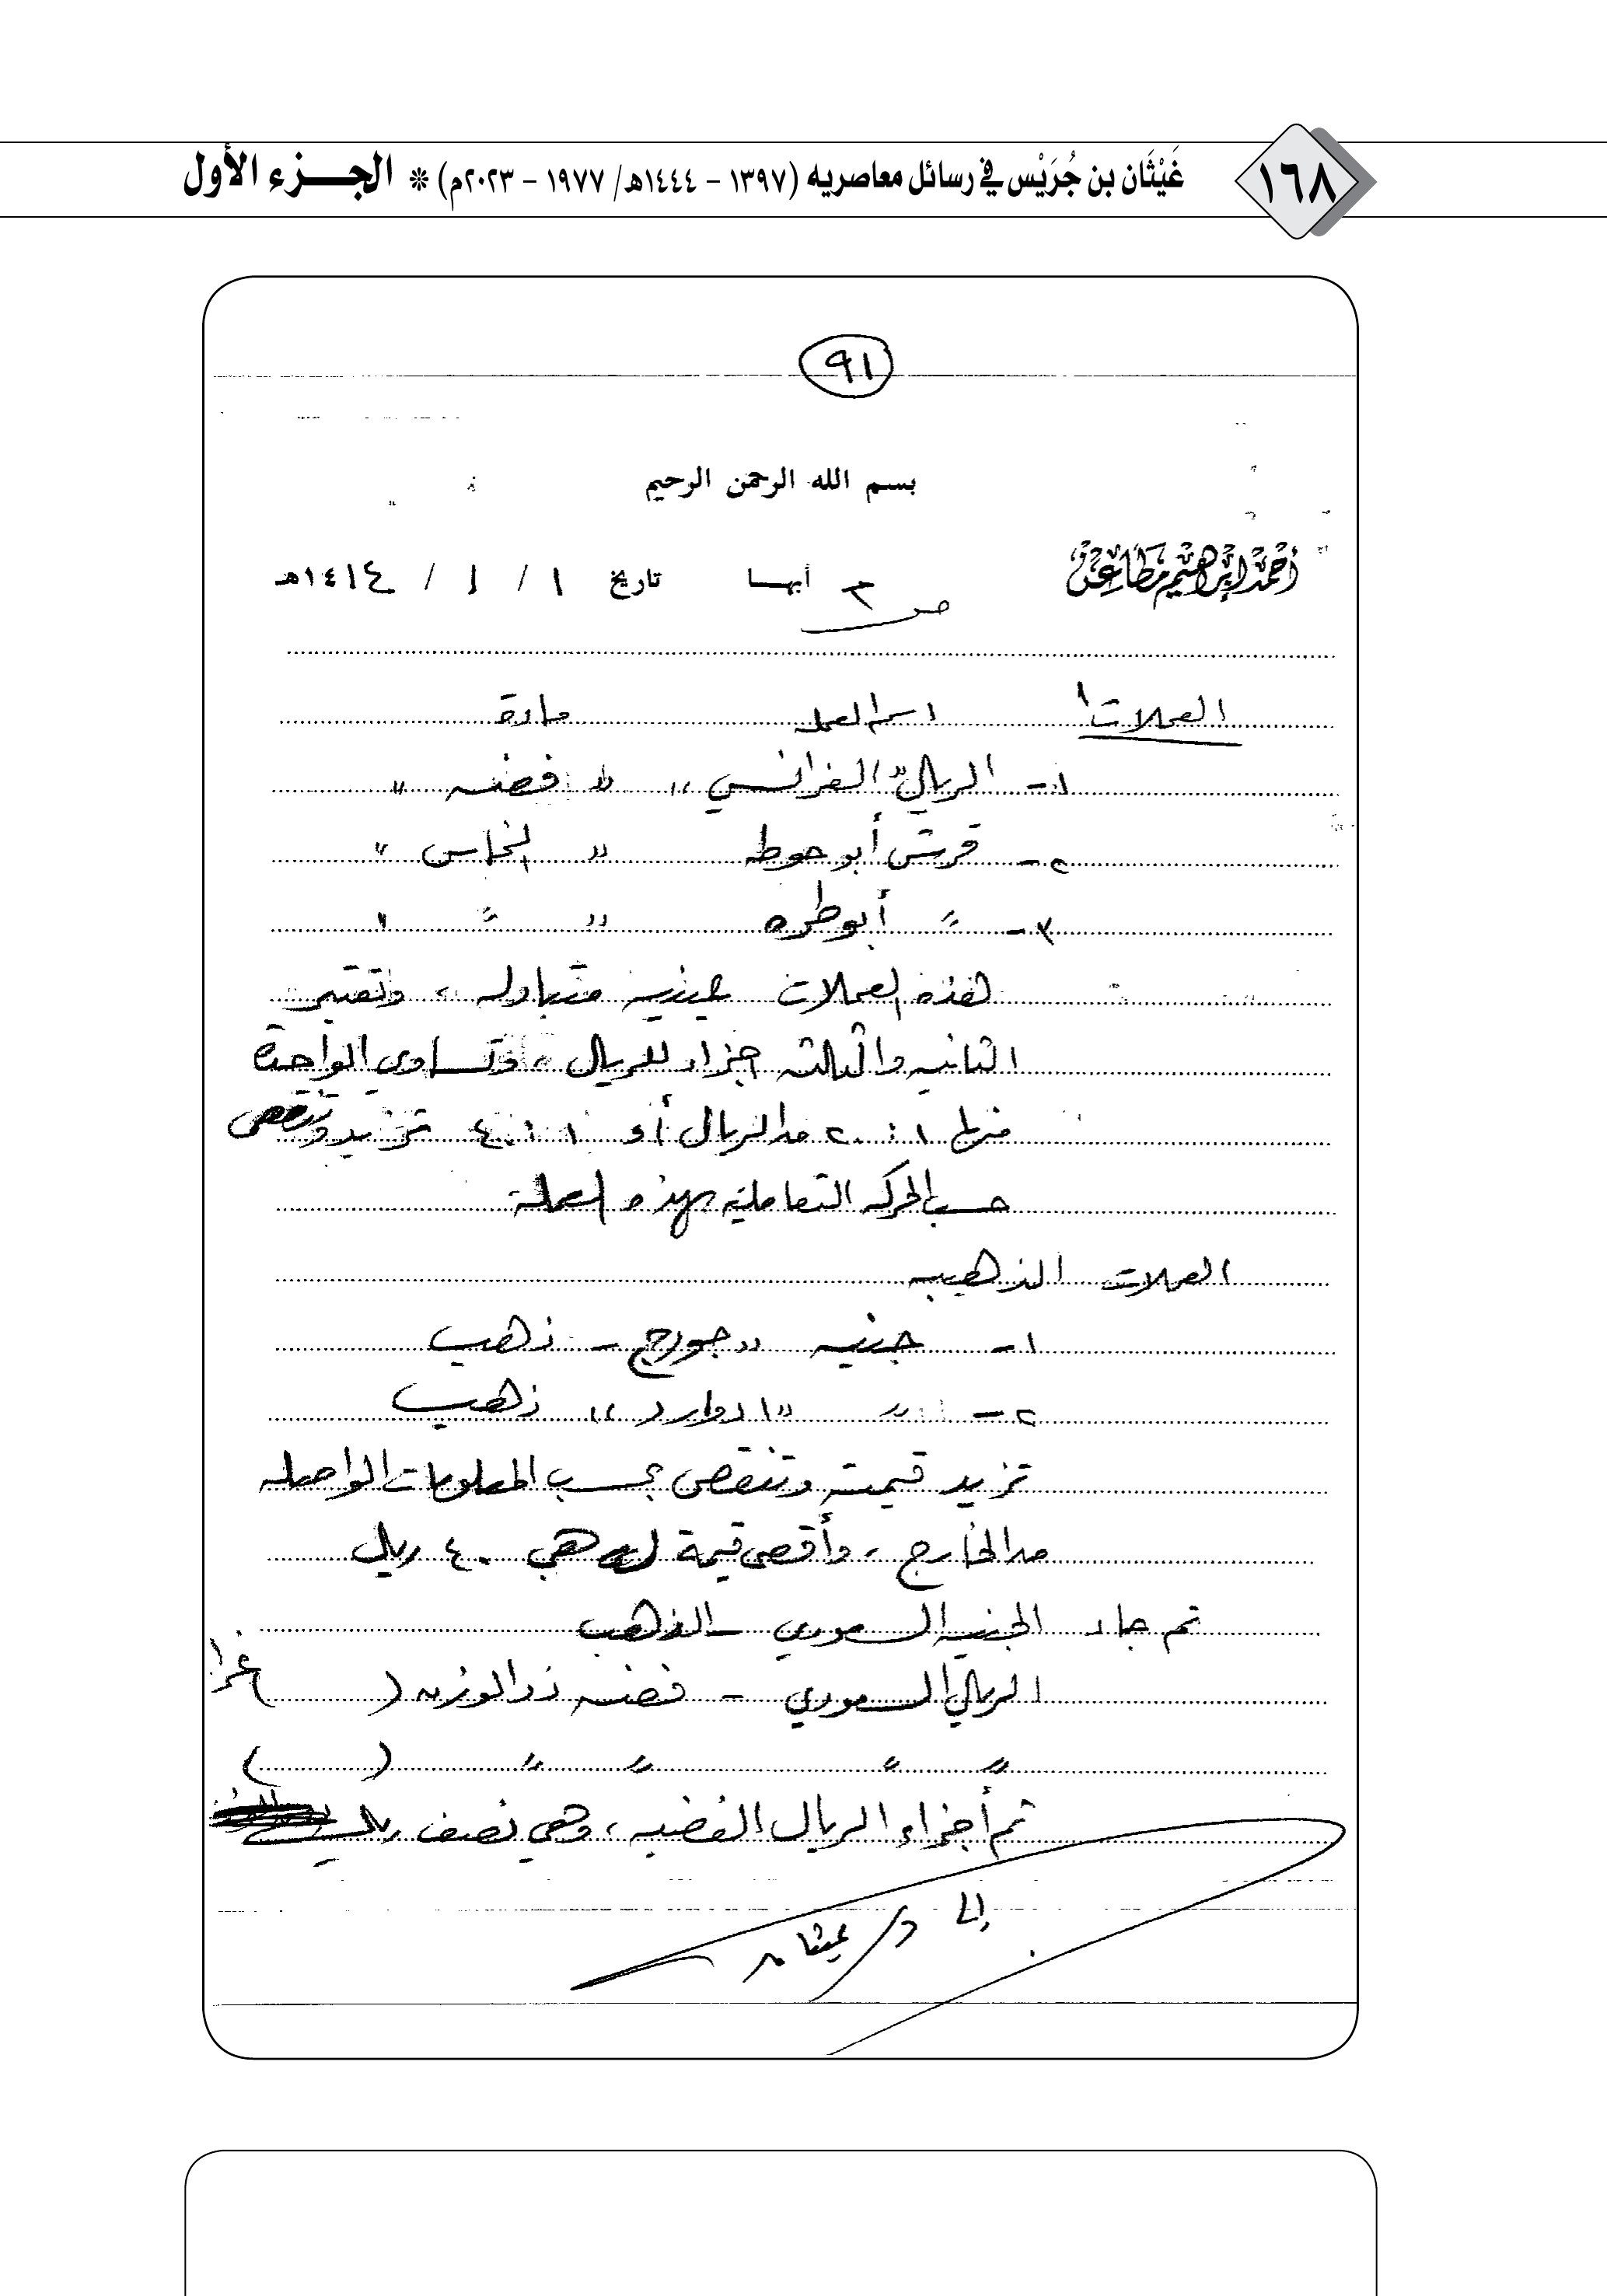 ١٦٨
غَيْثَان بن جُرَيْس في رسائل معاصريه (١٣٩٧ - ١٤٤٤هـ/ ١٩٧٧ - ٢٠٢٣م) * الجزء الأول
٩١
بسم الله الرحمن الرحيم
أحمد إبراهيم مطاعن
ص ٣ أبهـا تاريخ ١ / ١ / ١٤١٤هـ
العملات اسم العمله مادة
١- الريال "الفرانسي" "فضه"
٢- قرش أبو حوطه " النحاس "
٣- " أبو طره " " "
هذه العملات عينيه متداوله، وتعتبر
الثانيه والثالثه اجزاء للريال، وتساوي الواحدة
من ١ : ٢٠ من الريال أو ١ : ٤٠ تزيد وتنقص
حسب الحركه التعاملية بهذه العملة
العملات الذهبيه
١- جنيه "جورج - ذهب
٢- " "ادوارد" ذهب
تزيد قيمته وتنقص بحسب المعلومات الواصله
من الخارج، وأقصى قيمة هي ٤٠ ريال
ثم جاء الجنيه السعودي - الذهب
الريال السعودي - فضه ذو الوزن ( ) غرا
" " " " ( )
ثم أجزاء الريال الفضيه، وهي نصف ريال
إلى د/ غيثان